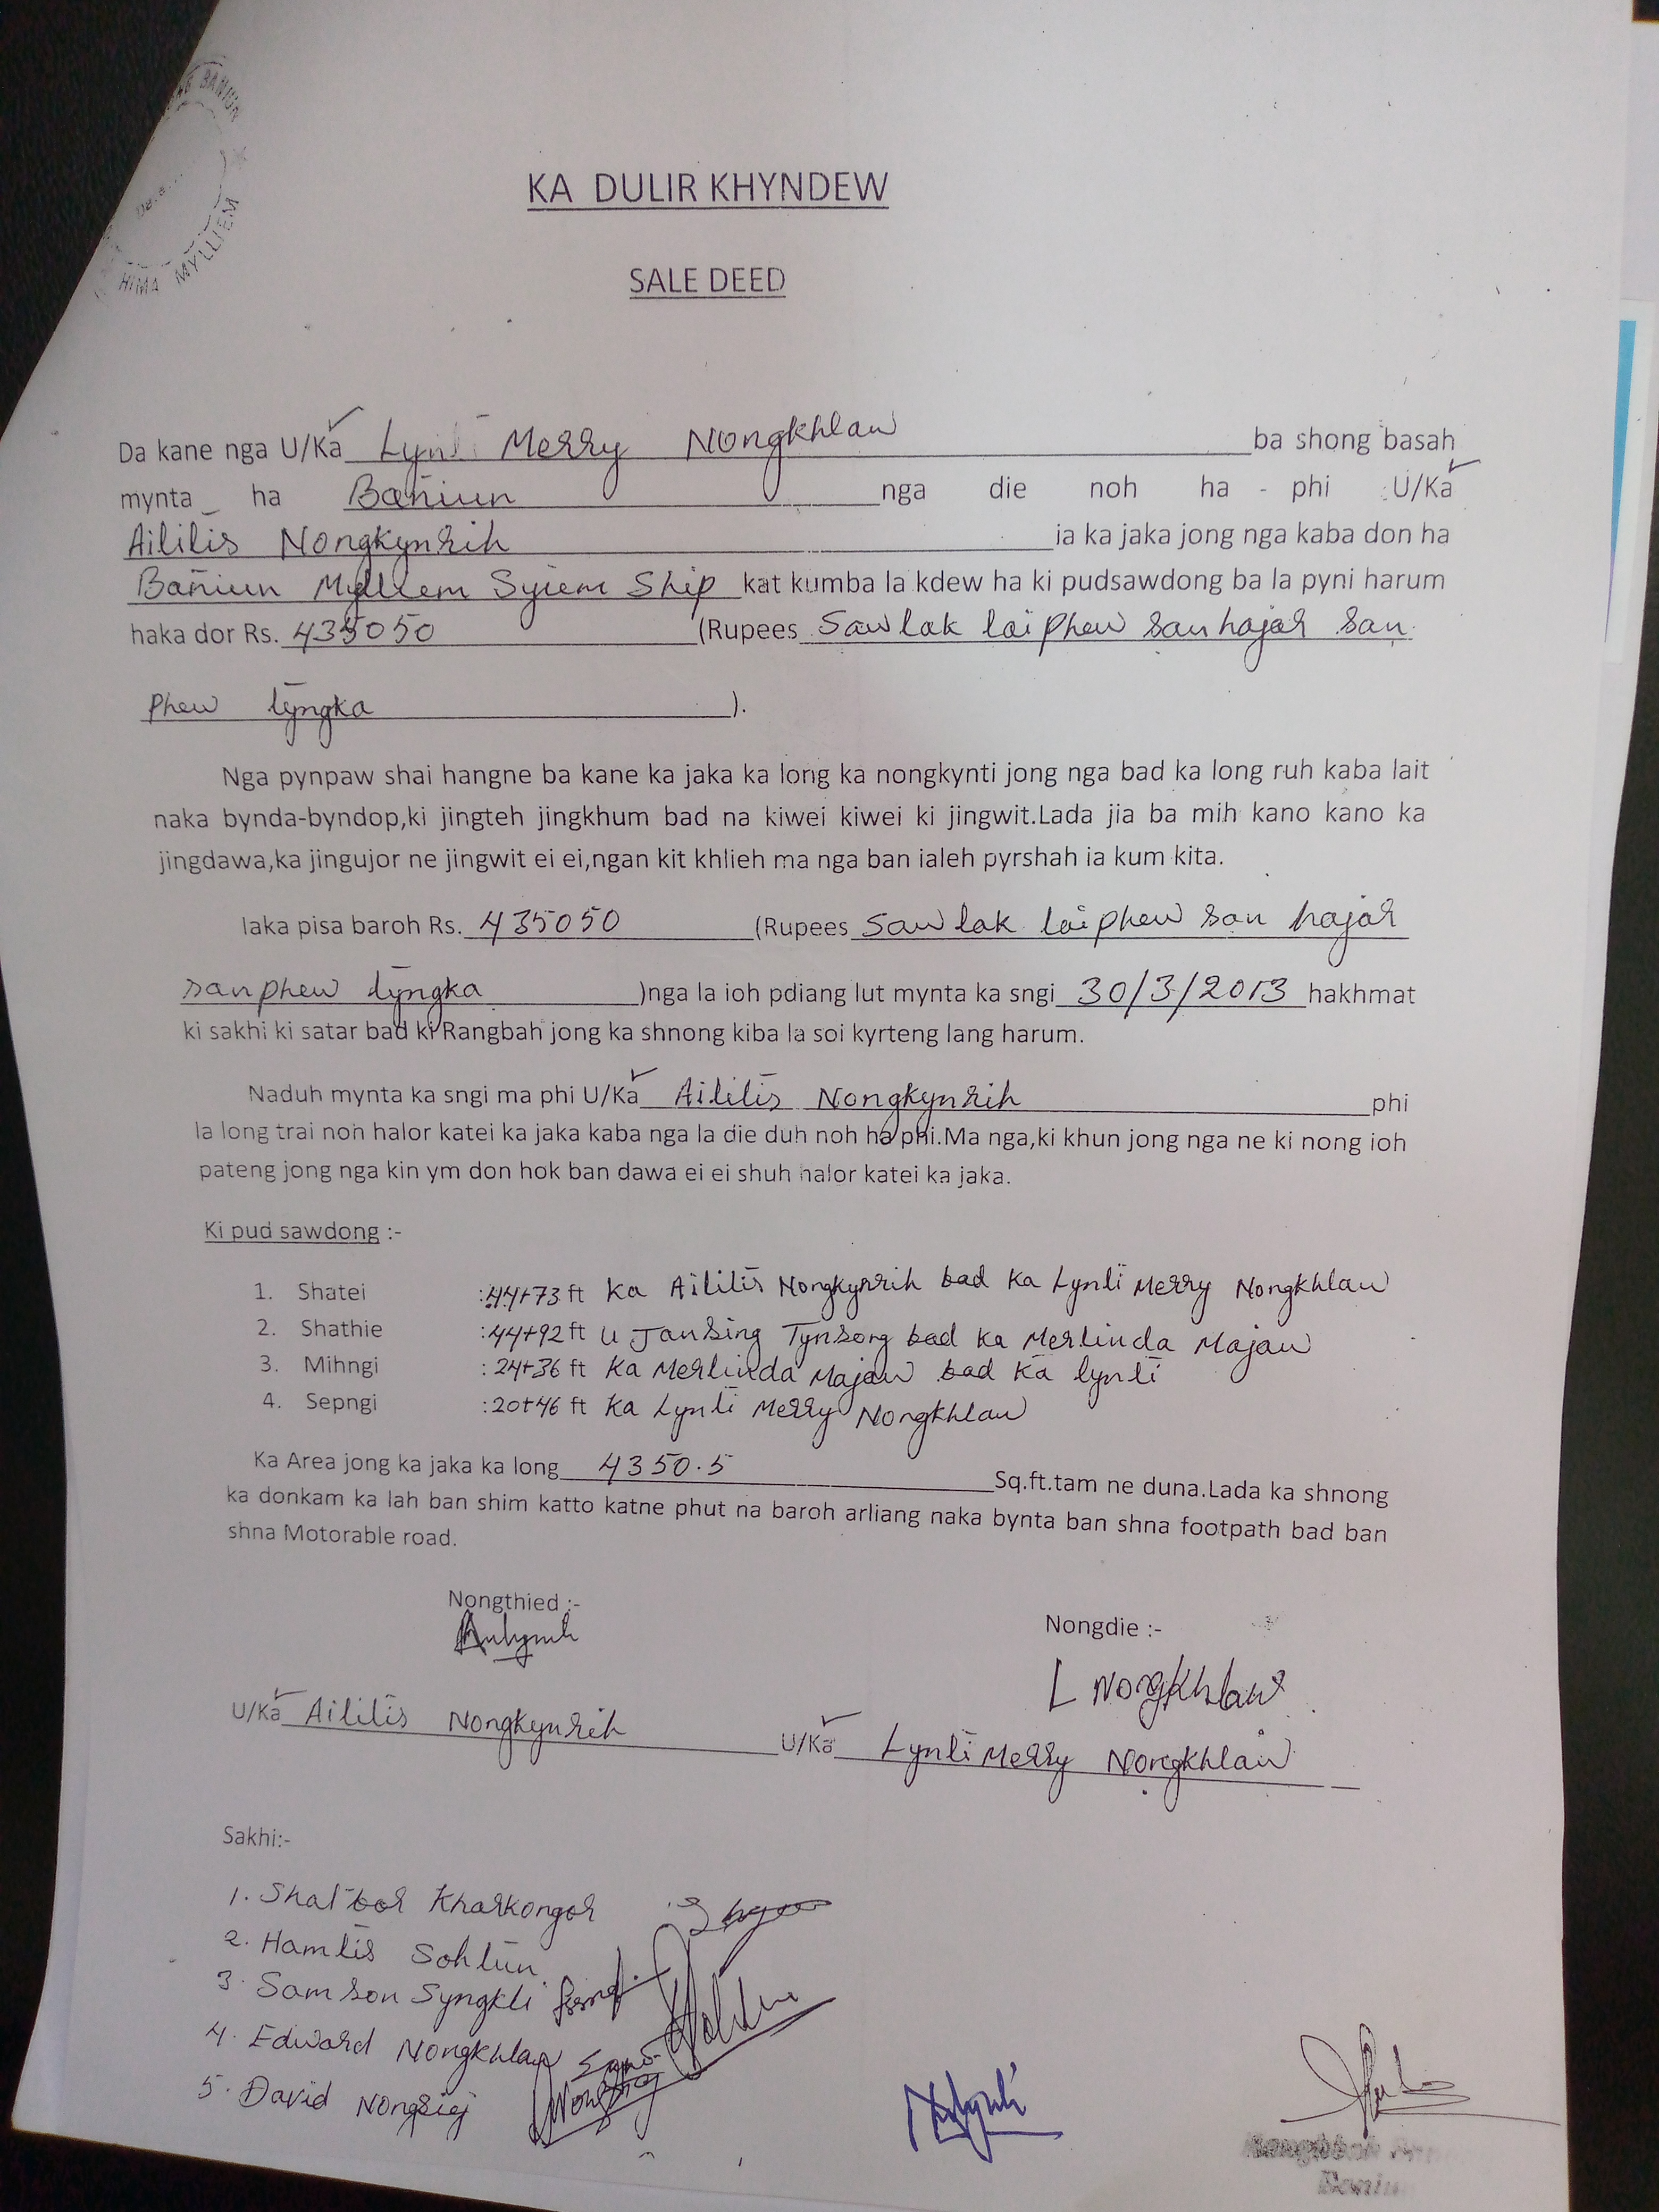 BANIUN
HIMA MYLLIEM
KA DULIR KHYNDEW
SALE DEED
Da kane nga U/Ka Lynti Merry Nongkhlaw ba shong basah
mynta ha Bañiun nga die noh ha - phi U/Ka
Aililis Nongkynrih ia ka jaka jong nga kaba don ha
Bañiun Mylliem Syiem Ship kat kumba la kdew ha ki pudsawdong ba la pyni harum
haka dor Rs. 435050 (Rupees Saw lak laiphew san hajar san
phew tyngka ).
Nga pynpaw shai hangne ba kane ka jaka ka long ka nongkynti jong nga bad ka long ruh kaba lait
naka bynda-byndop,ki jingteh jingkhum bad na kiwei kiwei ki jingwit.Lada jia ba mih kano kano ka
jingdawa,ka jingujor ne jingwit ei ei,ngan kit khlieh ma nga ban ialeh pyrshah ia kum kita.
Iaka pisa baroh Rs. 435050 (Rupees Saw lak laiphew san hajar
sanphew tyngka )nga la ioh pdiang lut mynta ka sngi 30/3/2013 hakhmat
ki sakhi ki satar bad ki Rangbah jong ka shnong kiba la soi kyrteng lang harum.
Naduh mynta ka sngi ma phi U/Ka Aililis Nongkynrih phi
la long trai noh halor katei ka jaka kaba nga la die duh noh ha phi.Ma nga,ki khun jong nga ne ki nong ioh
pateng jong nga kin ym don hok ban dawa ei ei shuh halor katei ka jaka.
Ki pud sawdong :-
1. Shatei :44+73 ft Ka Aililis Nongkynrih bad Ka Lynti Merry Nongkhlaw
2. Shathie :44+92 ft U Jansing Tynsong bad Ka Merlinda Majaw
3. Mihngi : 24+36 ft Ka Merlinda Majaw bad Ka lynti
4. Sepngi :20+46 ft Ka Lynti Merry Nongkhlaw
Ka Area jong ka jaka ka long 4350.5 Sq.ft.tam ne duna.Lada ka shnong
ka donkam ka lah ban shim katto katne phut na baroh arliang naka bynta ban shna footpath bad ban
shna Motorable road.
Nongthied :-
Nongdie :-
L Nongkhlaw
U/Ka Aililis Nongkynrih
U/Ka Lynti Merry Nongkhlaw
Sakhi:-
1. Shaibor Kharkongor
2. Hamlis Sohtun
3. Samson Syngkli
4. Edward Nongkhlaw
5. David Nongsiej